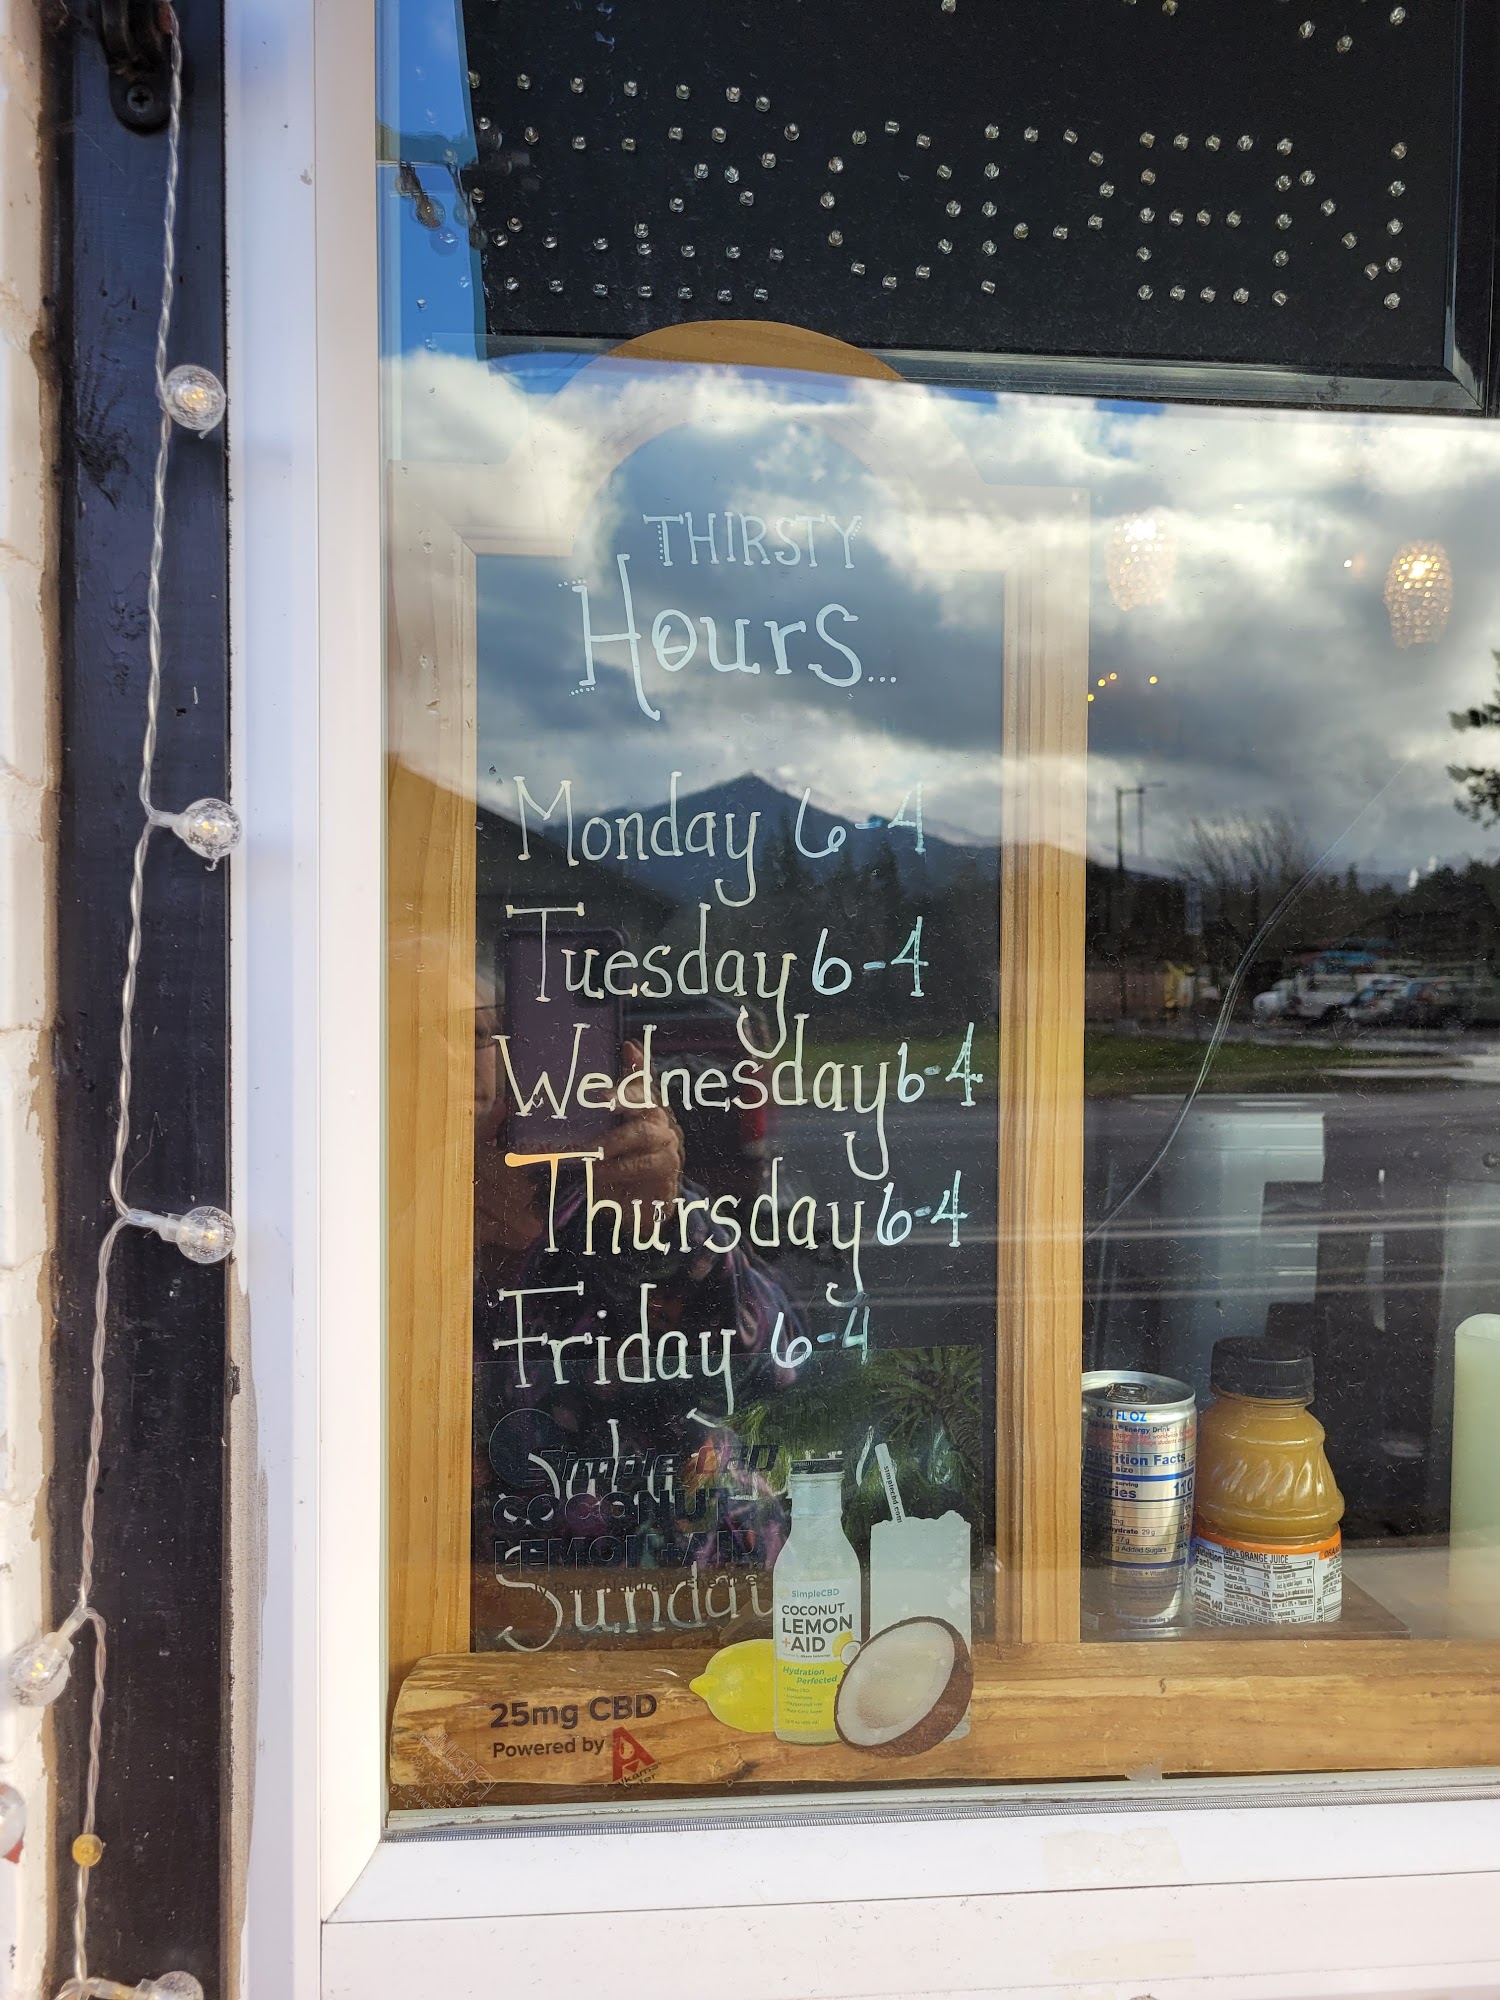 OPEN
THIRSTY
Hours...
Monday 6-4
Tuesday 6-4
Wednesday 6-4
Thursday 6-4
Friday 6-4
Simple CBD
COCONUT
LEMON+AID
Sunday
simplecbd.com
SimpleCBD
COCONUT
LEMON
+AID
Hydration
Perfected
25mg CBD
Powered by
8.4 FL OZ
Energy Drink
Nutrition Facts
size
Calories 110
100% ORANGE JUICE
Nutrition
Facts
140